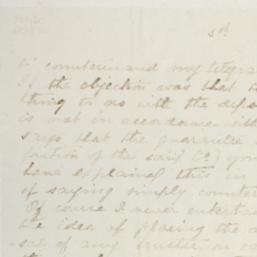 5th
to countermand my telegra
If the objection was that th
thing to do with the depos
is not in accordance with
says that the guarantee
portion of the said Co) you
have explained this in
of saying simply counter
Of course I never entertai
the idea of placing the d
sal of any trustee or co